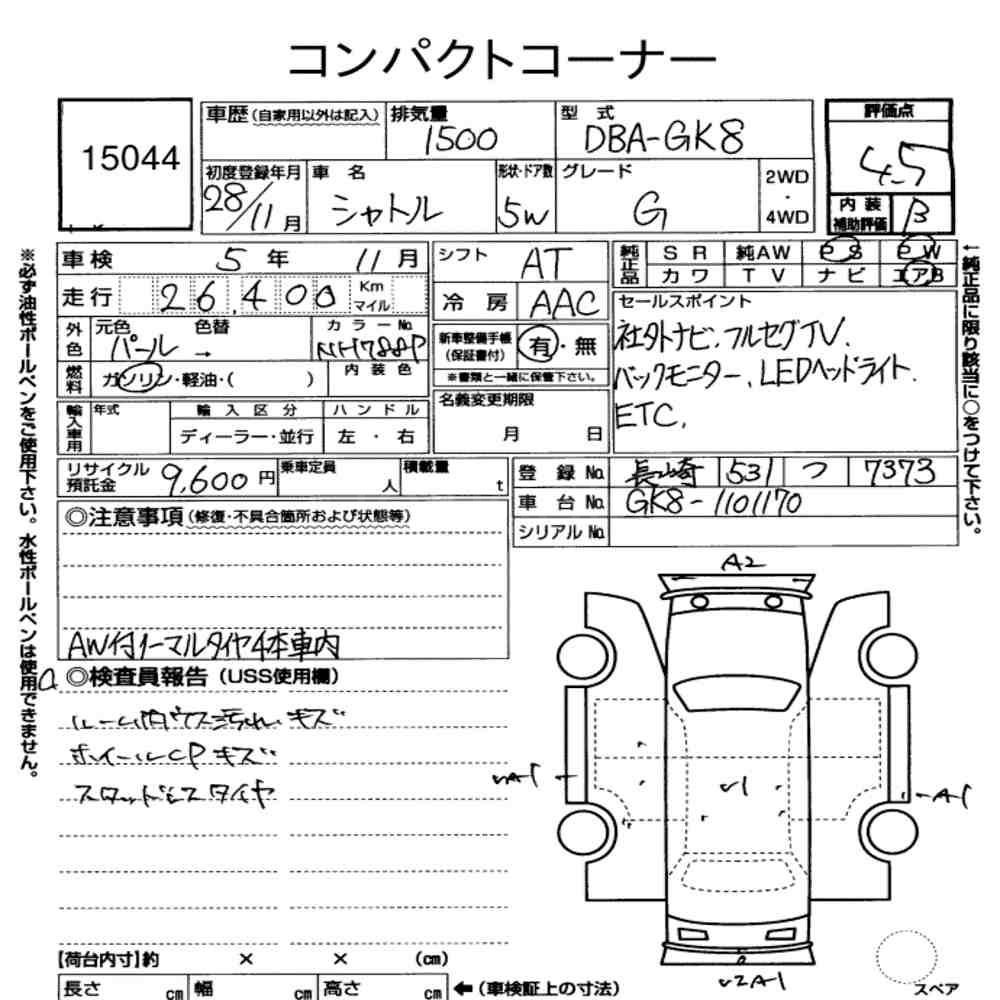 コンパクトコーナー
15044
車歴(自家用以外は記入) 排気量 1500 型 式 DBA-GK8
初度登録年月 28/11月 車 名 シャトル 形状・ドア数 5W グレード G 2WD・4WD
評価点 4.5
内装補助評価 B
車検 5年 11月
走行 26,400 Km マイル
外色 元色 パール → 色替 カラーNo. NH788P
燃料 ガソリン・軽油・( ) 内装色
輸入車用 年式 輸入区分 ハンドル
ディーラー・並行 左・右
シフト AT
冷房 AAC
新車整備手帳(保証書付) 有・無
※書類と一緒に保管下さい。
名義変更期限
月 日
純正品 SR 純AW PS PW
カワ TV ナビ エアB
セールスポイント
社外ナビ.フルセグTV.
バックモニター、LEDヘッドライト.
ETC.
リサイクル預託金 9,600円 乗車定員 人 積載量 t
登録No. 長崎 531 つ 7373
車台No. GK8-1101170
シリアルNo.
◎注意事項(修復・不具合箇所および状態等)
AW付ノーマルタイヤ4本車内
◎検査員報告(USS使用欄)
ルーム内ウス汚れ キズ
ホイールCPキズ
スタッドレスタイヤ
A2
A1
U1
A1
U2A1
【荷台内寸】約 × × (cm)
長さ cm 幅 cm 高さ cm ←(車検証上の寸法)
スペア
※必ず油性ボールペンをご使用下さい。水性ボールペンは使用できません。
←純正品に限り該当に○をつけて下さい。